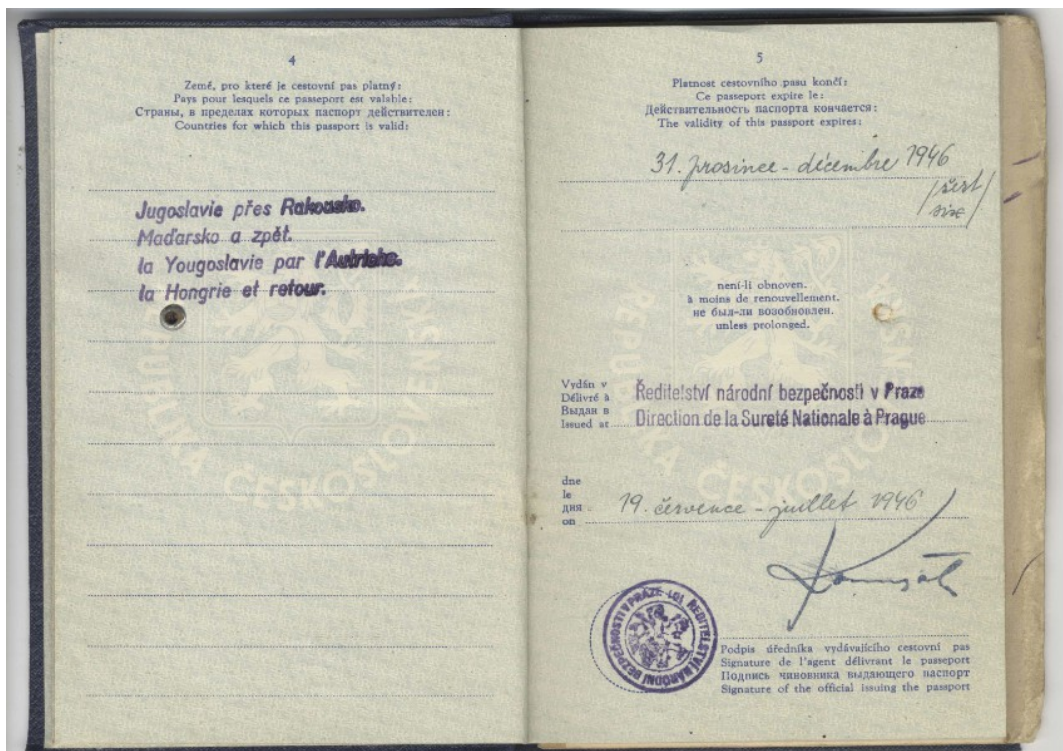 4
Země, pro které je cestovní pas platný:
Pays pour lesquels ce passeport est valable:
Страны, в пределах которых паспорт действителен:
Countries for which this passport is valid:
Jugoslavie přes Rakousko.
Maďarsko a zpět.
la Yougoslavie par l'Autriche.
la Hongrie et retour.
REPUBLIKA ČESKOSLOVENSKÁ
5
Platnost cestovního pasu končí:
Ce passeport expire le:
Действительность паспорта кончается:
The validity of this passport expires:
31. prosince - décembre 1946
/šest/
six/
není-li obnoven.
à moins de renouvellement.
не был-ли возобновлен.
unless prolonged.
Vydán v
Délivré à
Выдан в
Issued at
Ředitelství národní bezpečnosti v Praze
Direction de la Sureté Nationale à Prague
dne
le
дня
on
19. července - juillet 1946
ŘEDITELSTVÍ NÁRODNÍ BEZPEČNOSTI V PRAZE
Podpis úředníka vydávajícího cestovní pas
Signature de l'agent délivrant le passeport
Подпись чиновника выдающего паспорт
Signature of the official issuing the passport
REPUBLIKA ČESKOSLOVENSKÁ